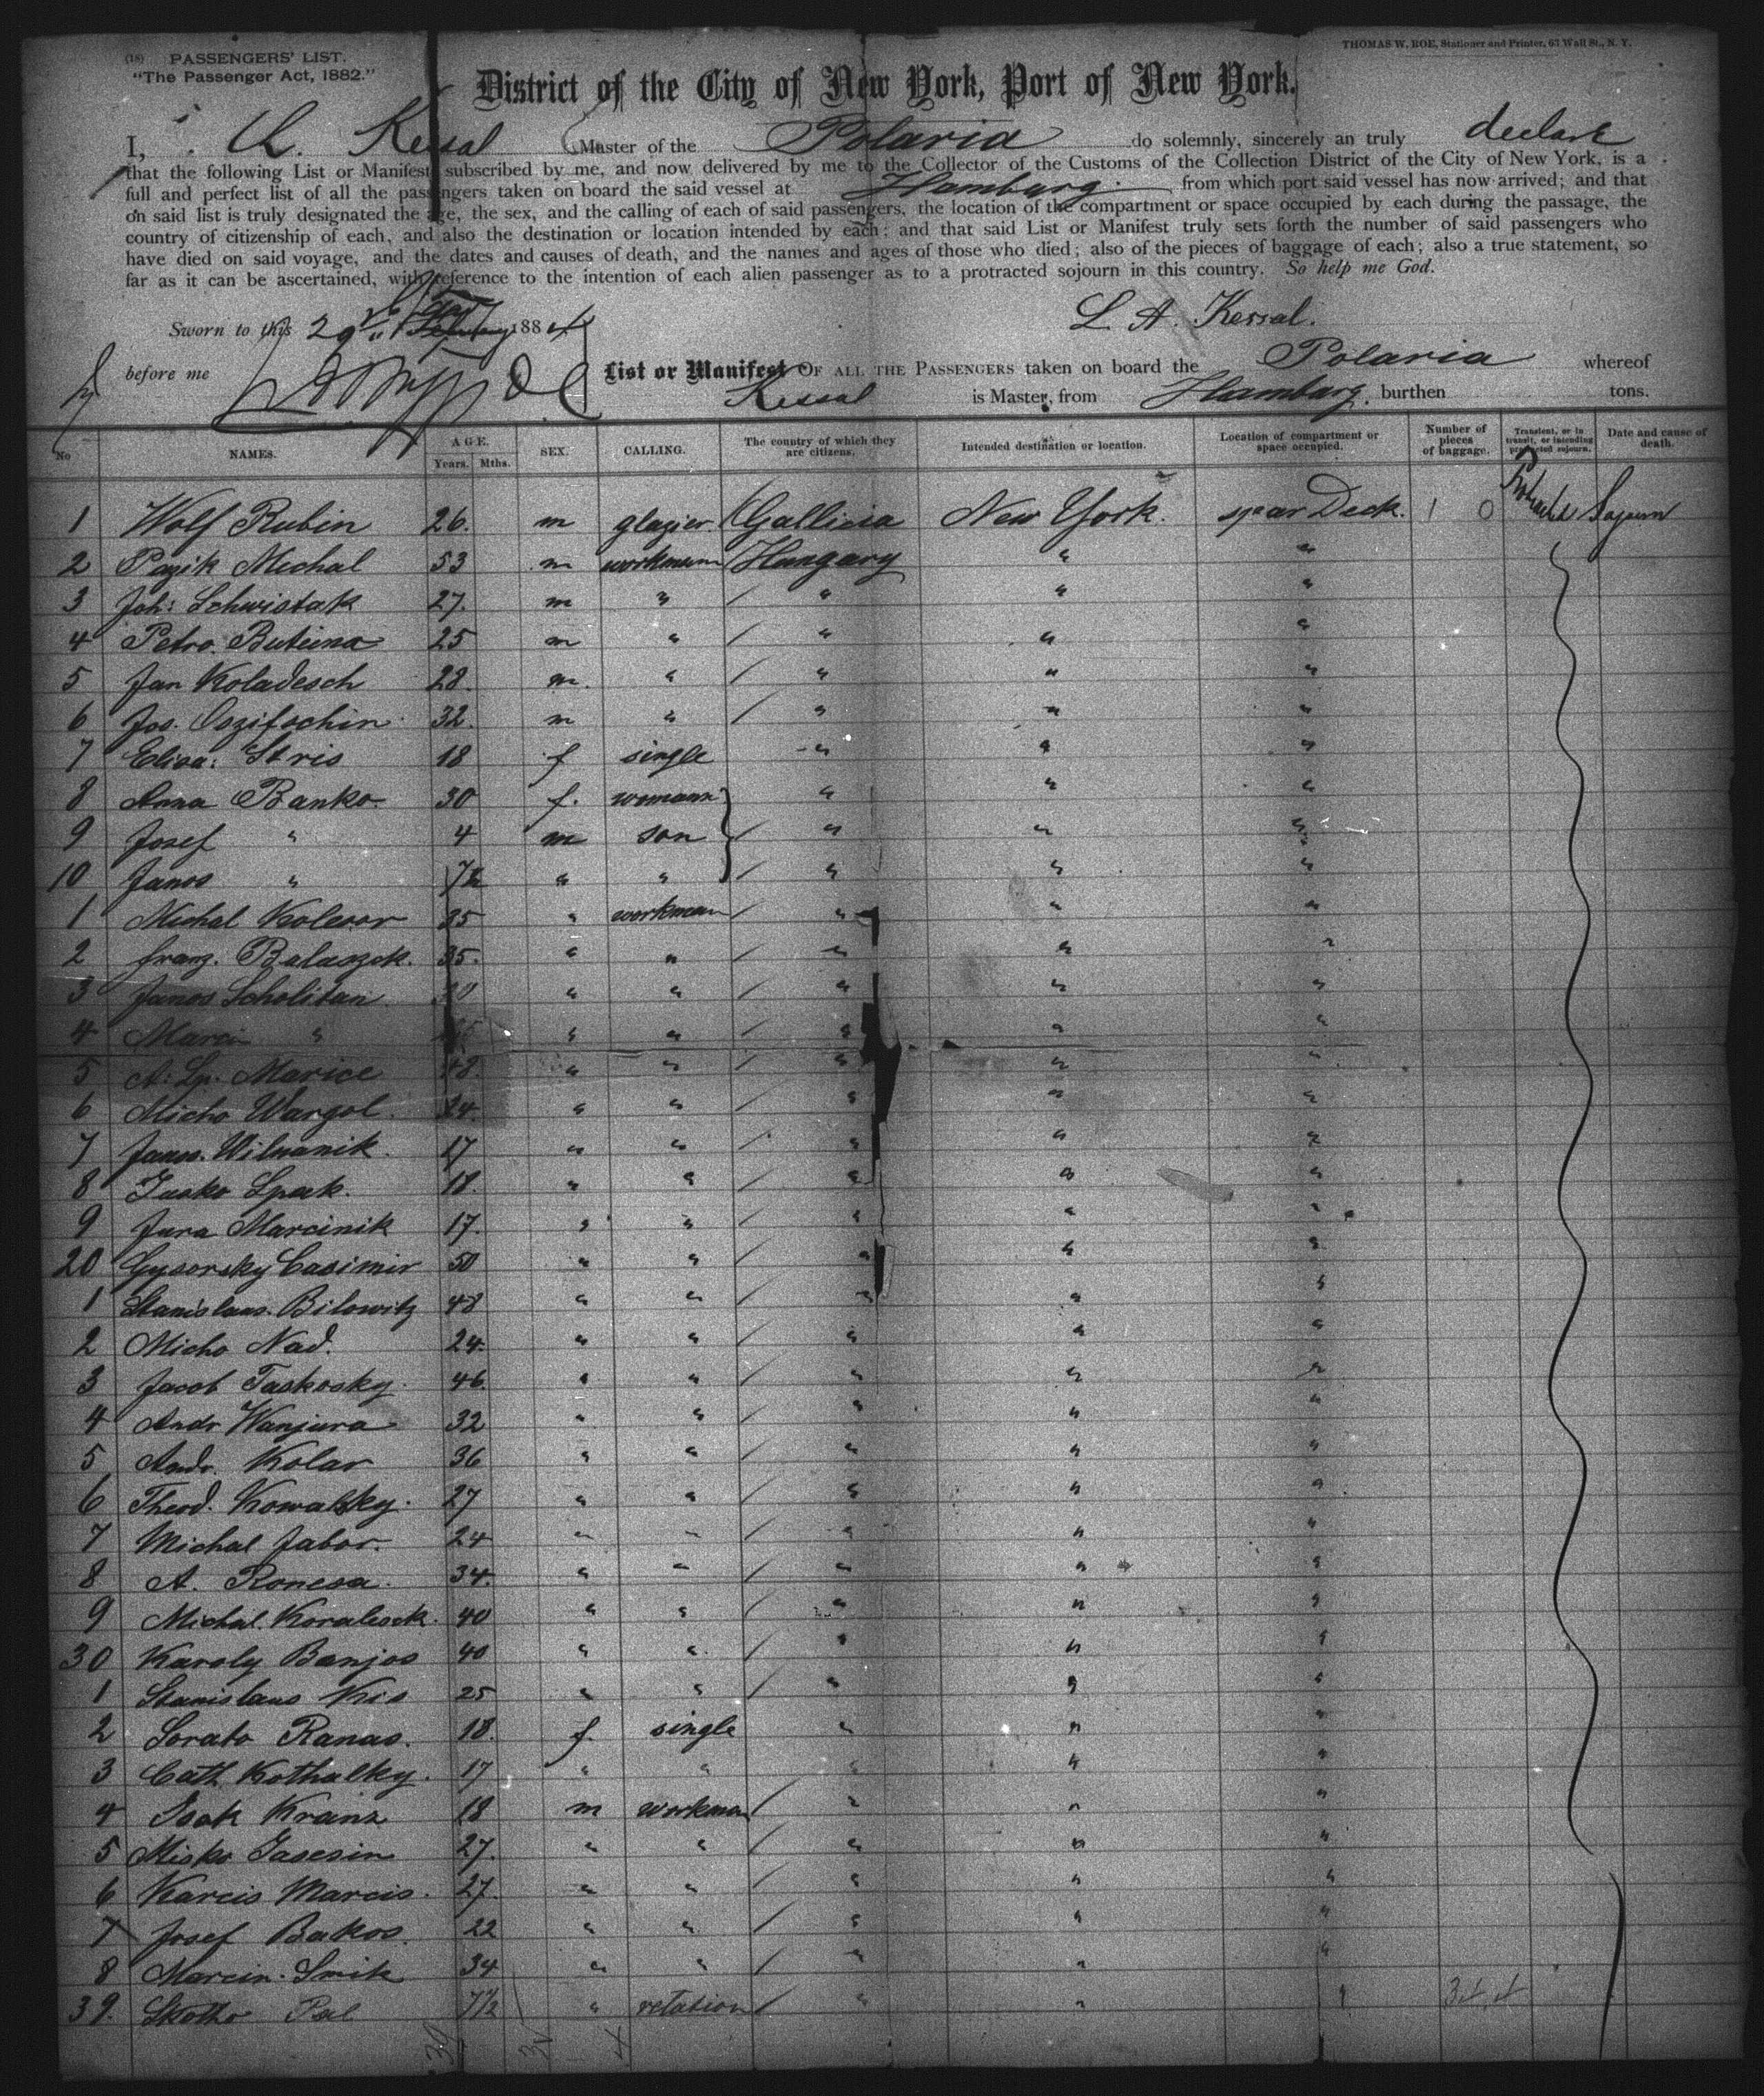 (18) PASSENGERS' LIST.
"The Passenger Act, 1882."
THOMAS W. ROE, Stationer and Printer, 63 Wall St., N. Y.
District of the City of New York, Port of New York.
I, Kessal Master of the Polaria do solemnly, sincerely an truly declare
that the following List or Manifest subscribed by me, and now delivered by me to the Collector of the Customs of the Collection District of the City of New York, is a
full and perfect list of all the passengers taken on board the said vessel at Hamburg from which port said vessel has now arrived; and that
on said list is truly designated the age, the sex, and the calling of each of said passengers, the location of the compartment or space occupied by each during the passage, the
country of citizenship of each, and also the destination or location intended by each; and that said List or Manifest truly sets forth the number of said passengers who
have died on said voyage, and the dates and causes of death, and the names and ages of those who died; also of the pieces of baggage of each; also a true statement, so
far as it can be ascertained, with reference to the intention of each alien passenger as to a protracted sojourn in this country. So help me God.
Sworn to this 29 1884 L. A. Kessal.
before me List or Manifest OF ALL THE PASSENGERS taken on board the Polaria whereof
Kessal is Master, from Hamburg, burthen tons.
No NAMES. AGE. Years. Mths. SEX. CALLING. The country of which they are citizens. Intended destination or location. Location of compartment or space occupied. Number of pieces of baggage. Transient, or in transit, or intending protracted sojourn. Date and cause of death.
1 Wolf Rubin 26. m glazier Gallicia New York. spear Deck. 1 0 Protracted Sojourn
2 Pazik Michal 53 m workmann Hungary " "
3 Joh: Schwistak 27. m " " " "
4 Petro. Buteina 25 m " " " "
5 Jan Koladesch 28. m. " " " "
6 Jos. 32. m " " " "
7 Elisa: Stris 18 f single " " "
8 Anna Banko. 30 f. womann " " "
9 Josef " 4 m son " " "
10 Janos " " " " " "
1 Michal Kolesar 35 " workman " " "
2 Franz. Balaszek. 35. " " " " "
3 Janos Scholitan " " " " "
4 Marci " " " " " "
5 Marice 48. " " " " "
6 Micho Wargol. 24 " " " " "
7 Janos. Wilnanik. 17 " " " " "
8 Jusko Spak. 18. " " " " "
9 Jura Marcinik 17. " " " " "
20 Gysorsky Casimir 50 " " " " "
1 Stanislaus. Bilowitz 48 " " " " "
2 Micho Nad. 24. " " " " "
3 Jacob Taskosky. 46. " " " " "
4 Andr Wanjura 32 " " " " "
5 Andr. Kolar 36 " " " " "
6 Theod. Kowalsky. 27 " " " " "
7 Michal Jabor. 24 " " " " "
8 A. Ronesa. 34. " " " " "
9 Michal. 40 " " " " "
30 Karoly Banjos 40 " " " " "
1 Stanislaus Kis 25 " " " " "
2 Sorato Ranas. 18. f. single " " "
3 Cath. Kothalky. 17 " " " " "
4 Isak Krainz 18 m workman " " "
5 Misko Jasesin 27. " " " " "
6 Karcis Marcis. 27. " " " " "
7 Josef Bakos. 22 " " " " "
8 Marcin. Smik 34 " " " " "
39. Skotho Pal 7½ " relation " " "
39